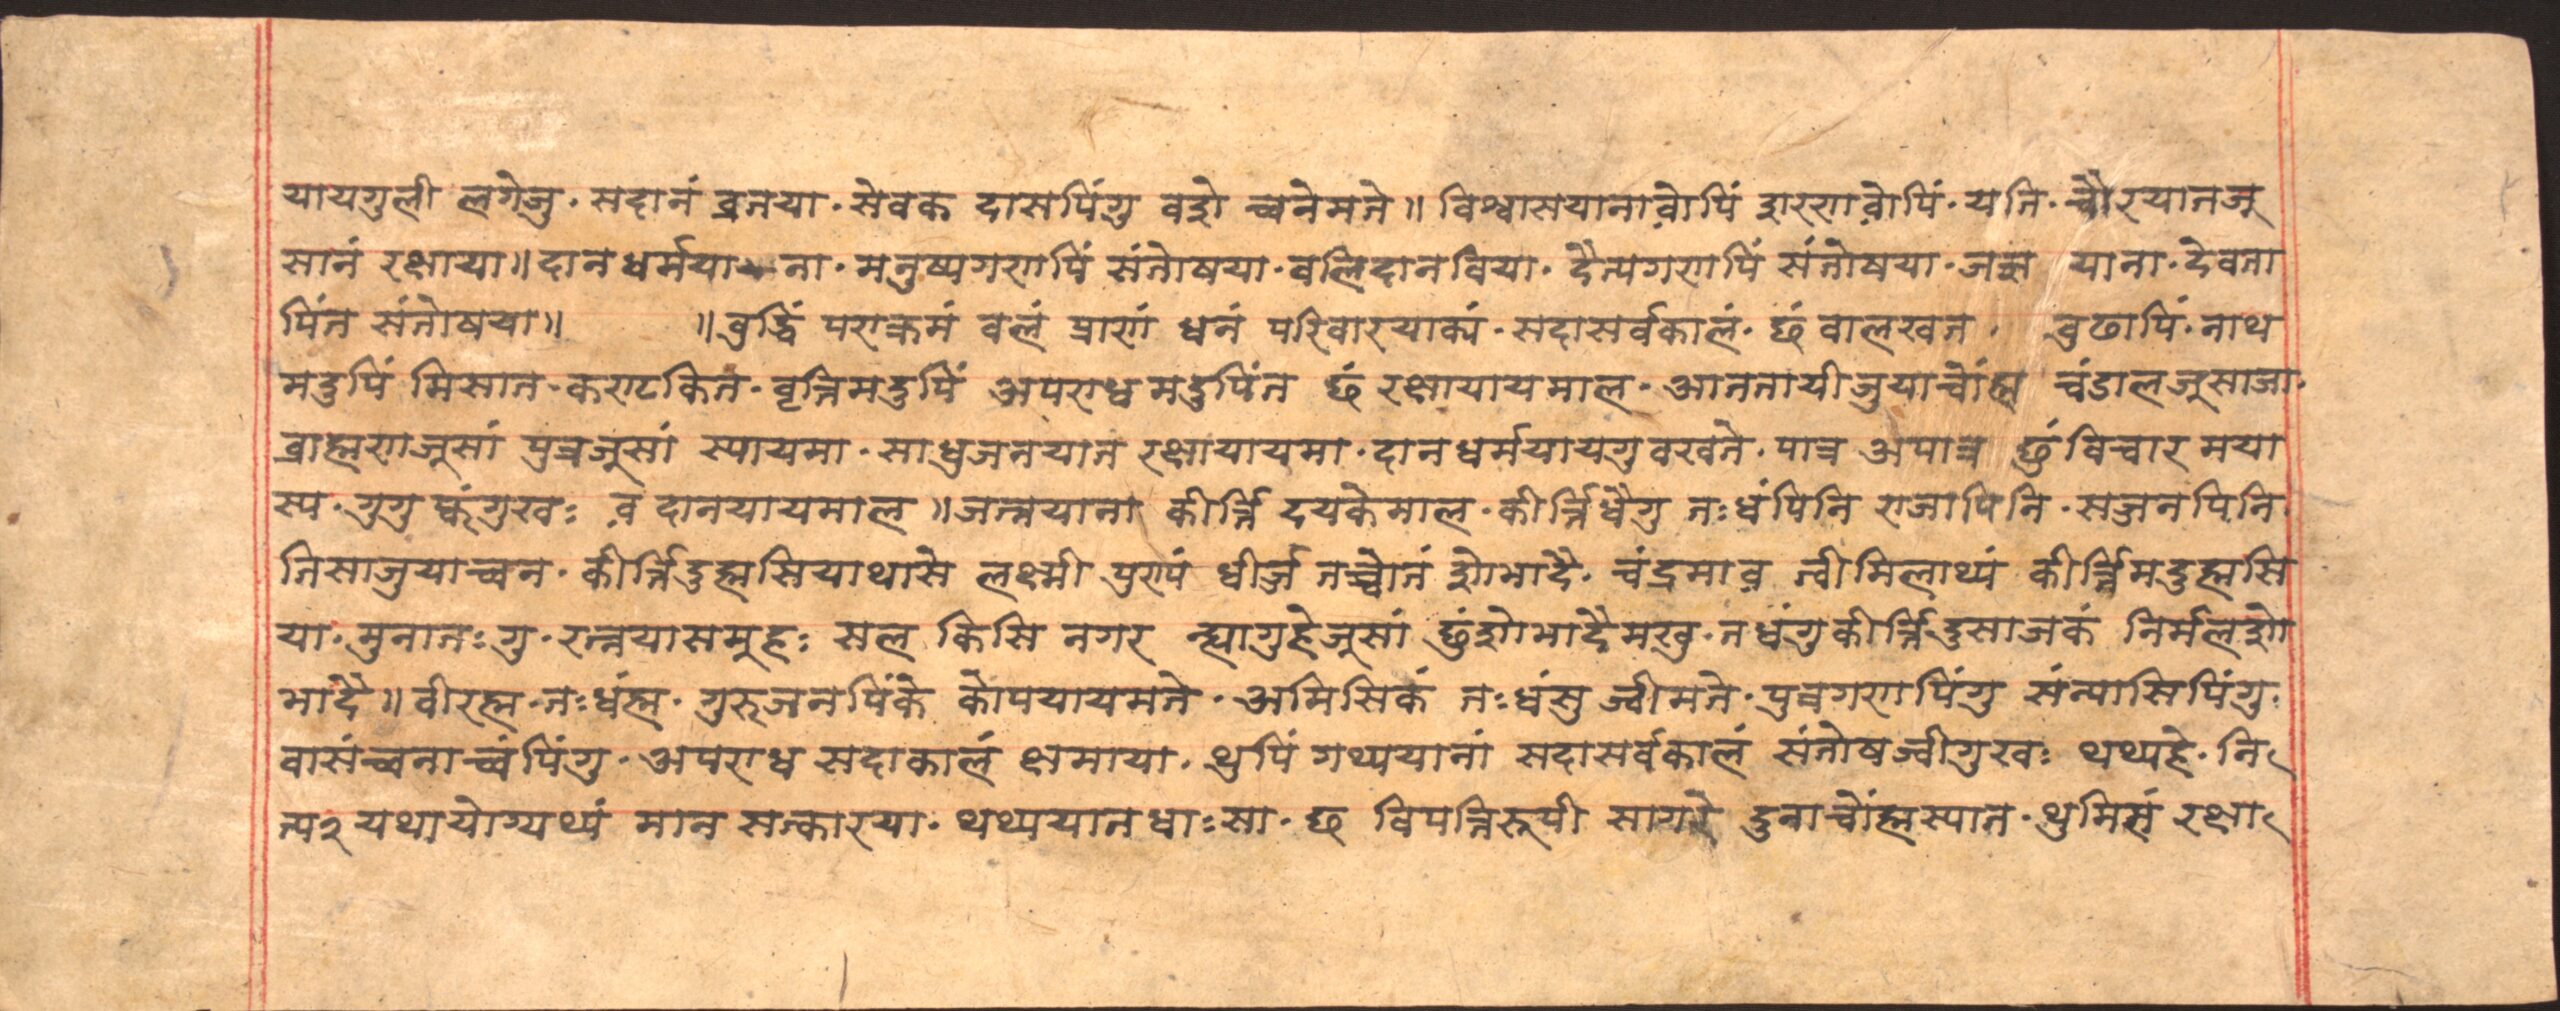 यायगुली लगेजु · सदानं व्रतया · सेवक दासपिंगु वशे च्वनेमते ॥ विश्वासयाना व़ोपिं शरणव़ोपिं · यति · चौरयातजू
सानं रक्षाया ॥ दान धर्मयाना · मनुष्यगणपिं संतोषया · बलिदानबिया · दैत्यगणपिं संतोषया · जज्ञ याना · देवता
पिंत संतोषया ॥ ॥ बुद्धिं पराक्रमं बलं प्राणं धनं परिवारयाक्यं · सदासर्वकालं · छं बालखत · बुढापिं · नाथ
मदुपिं मिसात · कण्टकित · वृत्तिमदुपिं अपराध मदुपिंत छं रक्षायायमाल · आततायीजुयाचोंह्म चंडालजूसाजा ·
ब्राह्मणजूसां पुत्रजूसां स्यायमा · साधुजनयात रक्षायायमा · दानधर्मयायगु वखते · पात्र अपात्र छुं विचार मया
स्य · गुगु फ्वंगुखः व़ दानयायमाल ॥ जत्नयाना कीर्त्ति दयकेमाल · कीर्त्तिधैगु तःधंपिनि राजापिनि · सज्जनपिनि ·
तिसाजुयाच्वन · कीर्त्तिदुह्मसियाथासे लक्ष्मी पुण्यं धीर्ज तच्वोतं शोभादै · चंद्रमाव़ त्वीमिलाथ्यं कीर्त्तिमदुह्मसि
या · मुनातःगु · रत्नयासमूहः सल किसि नगर न्ह्यागुहेजूसां छुंशोभादैमखु · तधंगुकीर्त्तिदुसाजकं निर्मलशो
भादै ॥ वीरह्म · तःधंह्म · गुरुजनपिंके कोपयायमते · अमिसिकं तःधंसु ज्वीमते · पुत्रगणपिंगु संन्यासिपिंगु ·
बासंच्वनाच्वंपिंगु · अपराध सदाकालं क्षमाया · थुपिं गथ्ययानां सदासर्वकालं संतोषज्वीगुखः थथ्यहे · नि
त्य२ यथायोग्यथ्यं मान सत्कारया · थथ्ययातधाःसा · छ विपत्तिरूपी सागरे दुनाचोंह्मस्यात · थुमिसं रक्षा